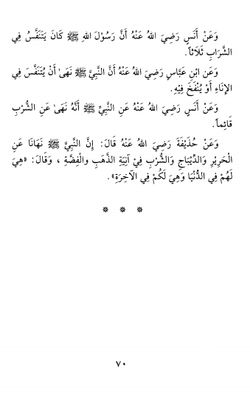 وَعَنْ أَنَسٍ رَضِيَ اللهُ عَنْهُ أَنَّ رَسُوْلَ اللهِ ﷺ كَانَ يَتَنَفَّسُ فِي
الشَّرَابِ ثَلَاثاً.
وَعَنِ ابْنِ عَبَّاسٍ رَضِيَ اللهُ عَنْهُ أَنَّ النَّبِيَّ ﷺ نَهَىٰ أَنْ يُتَنَفَّسَ فِي
الإِنَاءِ أَوْ يُنْفَخَ فِيْهِ.
وَعَنْ أَنَسٍ رَضِيَ اللهُ عَنْهُ عَنِ النَّبِيِّ ﷺ أَنَّهُ نَهَىٰ عَنِ الشُّرْبِ
قَائِماً.
وَعَنْ حُذَيْفَةَ رَضِيَ اللهُ عَنْهُ قَالَ: إِنَّ النَّبِيَّ ﷺ نَهَانَا عَنِ
الْحَرِيْرِ وَالدِّيْبَاجِ وَالشُّرْبِ فِي آنِيَةِ الذَّهَبِ وَالْفِضَّةِ ، وَقَالَ: «هِيَ
لَهُمْ فِي الدُّنْيَا وَهِيَ لَكُمْ فِي الْآخِرَةِ».
* * *
٧٠